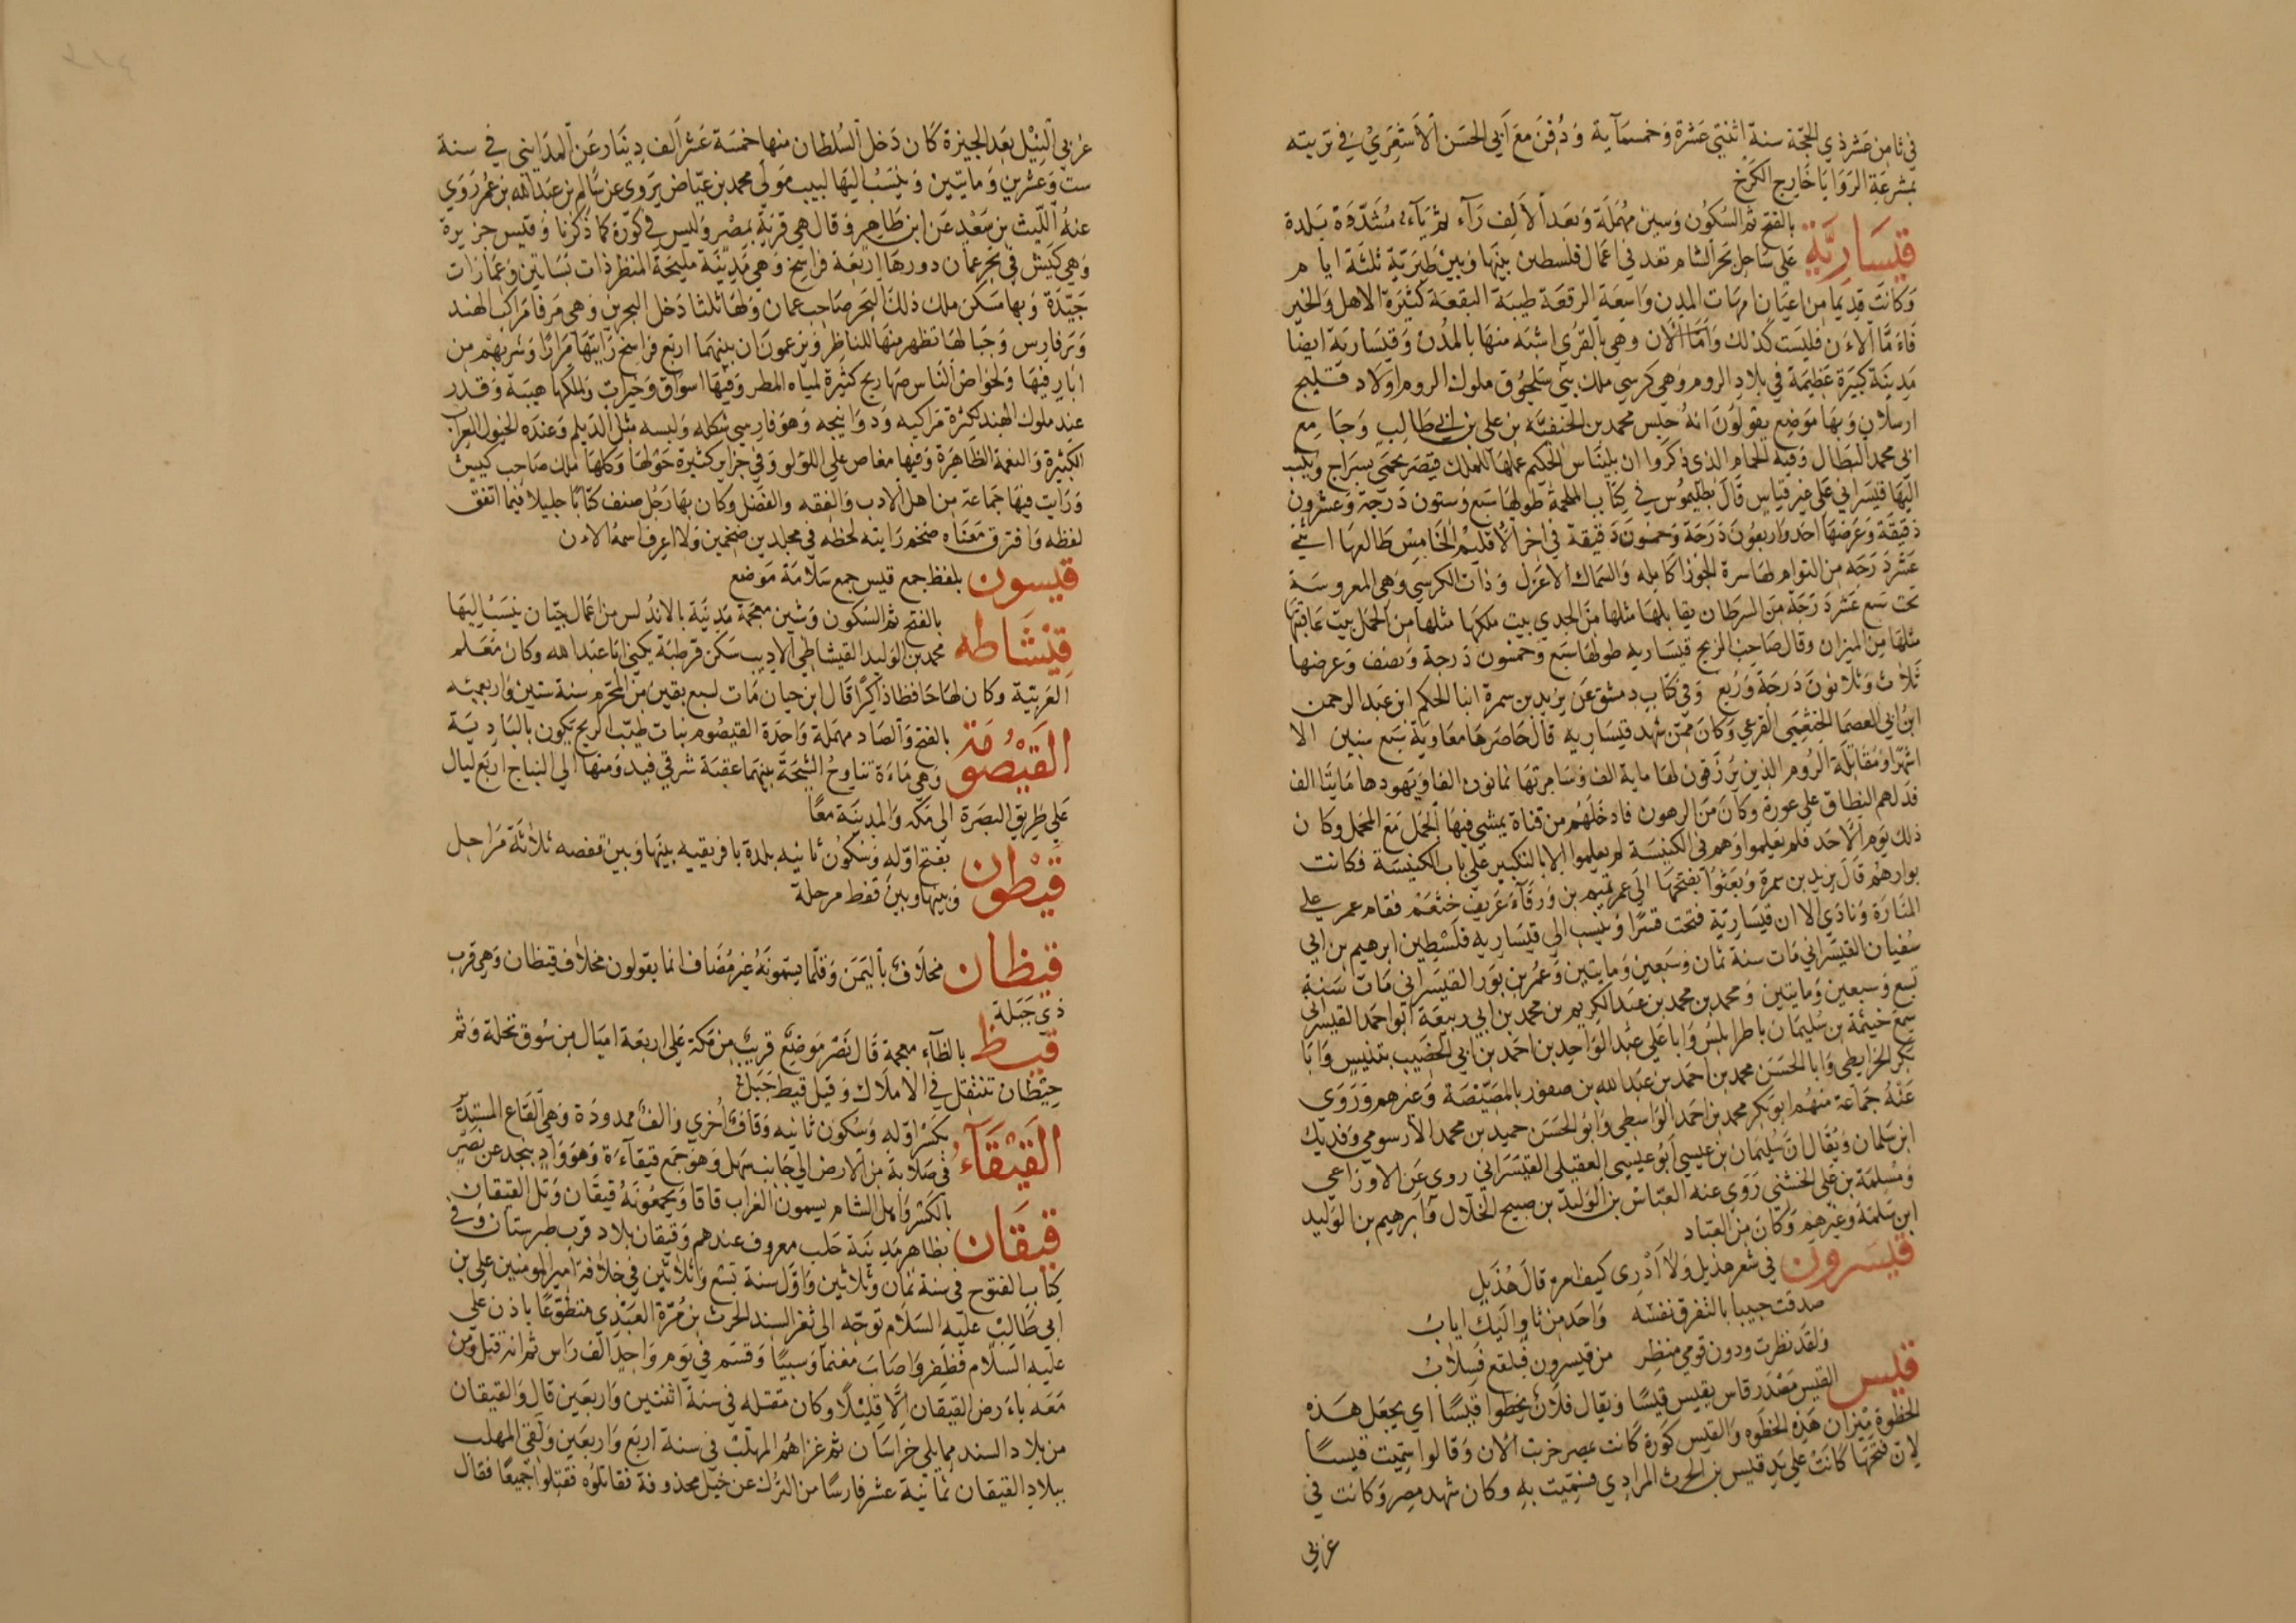 في ثامن عشر ذي الحجة سنة اثنتي عشرة وخمسمآية ودُفن مع أبي الحسن الأشعري في تربته
بمشرعة الروايا خارج الكرخ
قَيسَاريَّة بالفتح ثم السكون وسين مهملة وبعد الألف رآء ثم يآء مشددة بلدة
على ساحل بحر الشام تعد في اعمال فلسطين بينها وبين طبرية ثلثة ايام
وكانت قديما من اعيان امهات المدن واسعة الرقعة طيبة البقعة كثيرة الاهل والخير
فاما الان فليست كذلك واما الان وهي بالقرى اشبه منها بالمدن وقيسارية ايضا
مدينة كبيرة عظيمة في بلاد الروم وهي كرسي ملك بني سلجوق ملوك الروم اولاد قليج
ارسلان وبها موضع يقولون انه حبس محمد بن الحنفية بن علي بن ابي طالب وجامع
ابي محمد البطال وفيه الحمام الذي ذكروا ان بليناس الحكيم عملها للملك قيصر يحمى بسراج وينسب
اليها قيسراني على غير قياس قال بطليموس في كتاب الملحمة طولها سبع وستون درجة وعشرون
دقيقة وعرضها احد واربعون درجة وخمسون دقيقة في اخر الاقليم الخامس طالعها اثني
عشر درجه من التوام لها سرة الجوزا كامله والسماك الاعزل وذات الكرسي وهي المعروسة
تحت سبع عشر درجة من السرطان يقابلها مثلها من الجدي بيت ملكها مثلها من الحمل بيت عاقبتها
مثلها من الميزان وقال صاحب الزيج قيساريه طولها سبع وخمسون درجة ونصف وعرضها
ثلاث وثلاثون درجة وربع وفي كتاب دمشق عن يزيد بن سمرة انبا الحكم ابن عبد الرحمن
ابن ابي العصما الخثعمي القرعي وكان ممن شهد قيساريه قال حاصرها معاوية سبع سنين الا
اشهرا ومقاتلة الروم الذين يرزقون لها ماية الف وسامرتها ثمانون الفا ويهودها مايتا الف
فدلهم النطاق على عورة وكان من الرهون فادخلهم من قناة يمشي فيها الجمل مع المحمل وكان
ذلك يوم الاحد فلم يعلموا وهم في الكنيسة لم يعلموا الا بالتكبير على باب الكنيسة فكانت
بوارهم قال يزيد بن سمرة وبعثوا بفتحها الى عمر تميم بن ورقآء عريف خثعم فقام عمر على
المنارة ونادى الا ان قيسارية فتحت قسرا وينسب الى قيساريه فلسطين ابرهيم بن ابي
سفيان القيسراني مات سنة ثمان وسبعين ومايتين وعمر بن بور القيسراني مات سنة
تسع وسبعين ومايتين ومحمد بن محمد بن عبد الكريم بن محمد بن ابي ربيعة ابو احمد القيسراني
سمع خيثمة بن سليمان باطرابلس وابا علي عبد الواحد بن احمد بن ابي الخصيب بتنيس وابا
بكر الخرايطي وابا الحسن محمد بن احمد بن عبد الله بن صفور بالمصيصة وغيرهم وروى
عنه جماعة منهم ابو بكر محمد بن احمد الواسطي وابو الحسن حميد بن محمد الارسوفي وقديك
ابن سلمان ويقال ان سليمان بن عيسى ابو عيسى العقيلي القيسراني روى عن الاوزاعي
ومسلمة بن علي الخشني روى عنه العباس بن الوليد بن صبيح الخلال وابرهيم بن الوليد
ابن سلمة وغيرهم وكان من العباد
قيسرون في شعر هذيل ولا أدرى كيف امره قال هُذيل
صدقت حبيبا بالتفرق نفسه واحد من ثاو اليك اياب
ولقد نظرت ودون قومي منظر من قيسرون فبلقع فسلاب
قيس القيس مصدر قاس يقيس قيسا ويقال فلان يخطوا قيسا اي يجعل هذه
الخطوة بميزان هذه الخطوه والقيس كورة كانت بمصر خربت الان وقالوا سميت قيسا
لان فتحها كانت على يد قيس بن الحرث المرادي فسميت به وكان شهد مصر وكانت في
غربي
غربي النيل بعد الجيزة كان دخل السلطان منها خمسة عشر الف دينار عن المدايني في سنة
ست وعشرين ومايتين وينسب اليها لبيب مولى محمد بن عياض يروى عن سالم بن عبد الله بن عمر روى
عنه الليث بن سعد عن ابن طاهر وقال هي قرية بمصر وليس في كورة كما ذكرنا وقيس جزيرة
وهي كيش في بحر عمان دورها اربعة فراسخ وهي مدينة مليحة المنظر ذات بساتين وعمارات
جيدة وبها مسكن ملك ذلك البحر صاحب عمان ولها ثلثا دخل البحرين وهي مرفا مراكب الهند
وبر فارس وجبالها تظهر منها للناظر ويزعمون ان بينهما اربع فراسخ رايتها مرارا وشربهم من
ابار فيها ولخواص الناس صهاريج كثيرة لمياه المطر وفيها اسواق وخيرات ولملكها هيبة وقدر
عند ملوك الهند لكثرة مراكبه ودوانيجه وهو فارسي شكله ولبسه مثل الديلم وعنده الخيول العراب
الكثيرة والنعمة الظاهرة وفيها مغاص على اللولو وفي جزاير كثيرة حولها وكلها ملك صاحب كيش
ورايت فيها جماعة من اهل الادب والفقه والفضل وكان بها رجل صنف كتابا جليلا فيما اتفق
لفظه وافترق معناه ضخم رايته بخطه في مجلدين ضخمين ولا اعرف اسمه الان
قيسون بلفظ جمع قيس جمع سلامة موضع
قَيْشَاطه بالفتح ثم السكون وشين معجمة مدينة بالاندلس من اعمال جيان ينسب اليها
محمد بن الوليد القيشاطي الاديب سكن قرطبة يكنى ابا عبد الله وكان معلم
العربية وكان لها حافظا ذاكرا قال ابن حيان مات لسبع بقين من المحرم سنة ستين واربعمئه
القَيْصُومَة بالفتح والصاد مهملة واحدة القيصوم نبات طيب الريح يكون بالبادية
وهي ماءة تناوح الشيحة بينهما عقبة شرقي فيد ومنها الى النباج اربع ليال
على طريق البصرة الى مكه والمدينة معا
قَيْطون بفتح اوله وسكون ثانيه بلدة بافريقيه بينها وبين قفصه ثلاثة مراحل
وبينها وبين قفط مرحلة
قيظان مخلاف باليمن وقلما يسمونه غير مضاف انما يقولون مخلاف قيظان وهي قرب
ذي جبلة
قيظ بالظآء معجمة قال نصر موضع قريب من مكة على اربعة اميال من سوق نخلة وثم
حيطان تنتقل في الاملاك وقيل قيظ جبل
القَيْقَآء بكسر اوله وسكون ثانيه وقاف أخرى والف ممدودة وهي القاع المستدير
في صلابة من الارض الى جانب سهل وهو جمع قيقآءة وهو واد بنجد عن نصر
قيقَان بالكسر واهل الشام يسمون الغراب قاقا ويجمعونه قيقان وتل القيقان
بظاهر مدينة حلب معروف عندهم وقيقان بلاد قرب طبرستان وفي
كتاب الفتوح في سنة ثمان وثلاثين واول سنة تسع وثلاثين في خلافة امير المومنين علي بن
ابي طالب عليه السلام توجه الى ثغر السند الحرث بن مرة العبدي متطوعا باذن علي
عليه السلام فظفر واصاب مغنما وسبيا وقسم في يوم واحد الف راس ثم انه قتل ومن
معه بارض القيقان الا قليلا وكان مقتله في سنة اثنتين واربعين قال والقيقان
من بلاد السند مما يلي خراسان ثم غزاهم المهلب في سنة اربع واربعين ولقي المهلب
ببلاد القيقان ثمانية عشر فارسا من الترك عن خيل محذوفة فقاتلوه فقتلوا جميعا فقال